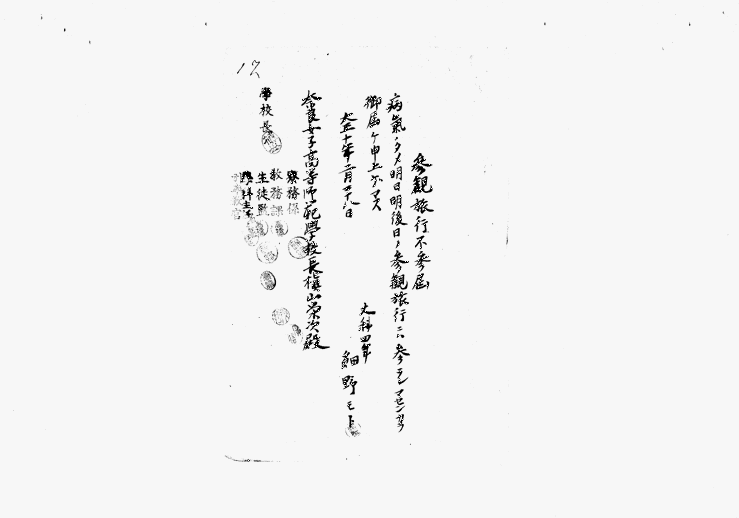 參觀旅行不參屆
病氣ノタメ明日明後日ノ參觀旅行ニハ參
御屆ケ申上ゲマス
大正十年二月廿八日
文科四年
細野モト
奈良女子高等師範學校長槇山榮次殿
寮務係
教務課
生徒監
學校長
17